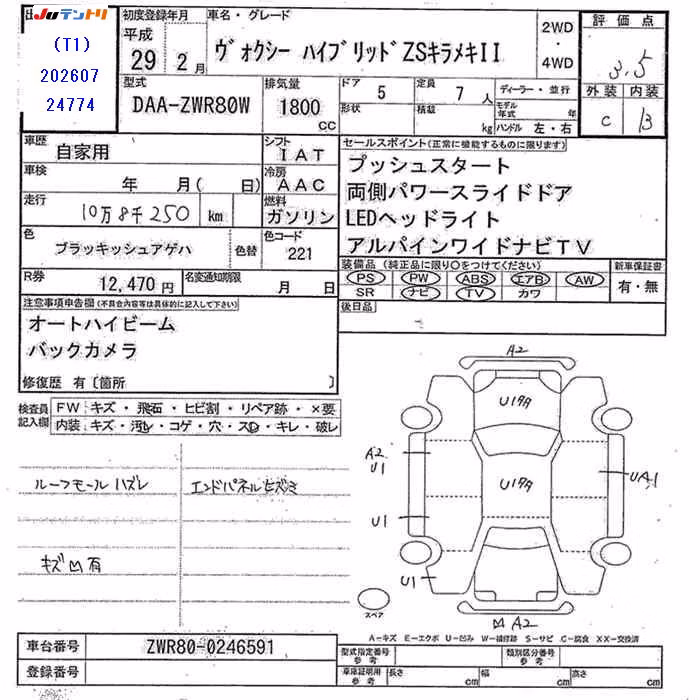 JUテントリ
(T1)
202607
24774
初度登録年月
平成
29 2月
車名・グレード
ヴォクシー ハイブリッドZSキラメキII
2WD
・
4WD
評価点
3.5
外装 内装
C B
型式
DAA-ZWR80W
排気量
1800
CC
ドア 5
形状
定員 7人
積載 kg
ディーラー・並行
モデル年式 年
ハンドル 左・右
車歴
自家用
シフト
IAT
車検
年 月( 日)
冷房
AAC
走行
10万8千250 km
燃料
ガソリン
色
ブラッキッシュアゲハ
色替
色コード
221
R券
12,470円
名変通知期限
月 日
セールスポイント(正常に機能するものに限ります)
プッシュスタート
両側パワースライドドア
LEDヘッドライト
アルパインワイドナビTV
装備品(純正品に限り○をつけてください)
PS PW ABS エアB AW
SR ナビ TV カワ
新車保証書
有・無
後日品
注意事項申告欄(不具合内容等は具体的に記入して下さい)
オートハイビーム
バックカメラ
修復歴 有〔箇所 〕
検査員
記入欄
FW キズ・飛石・ヒビ割・リペア跡・×要
内装 キズ・汚レ・コゲ・穴・スレ・キレ・破レ
ルーフモールハズレ
エンドパネルヒズミ
キズ凹有
A2
U1タタ
A2
U1
U1タタ
UA1
U1
U1
スペア
凹A2
A-キズ E-エクボ U-凹み W-補修跡 S-サビ C-腐食 XX-交換済
車台番号
ZWR80-0246591
登録番号
型式指定番号
参考
類別区分番号
参考
車庫証明用
参考
長さ cm
幅 cm
高さ cm